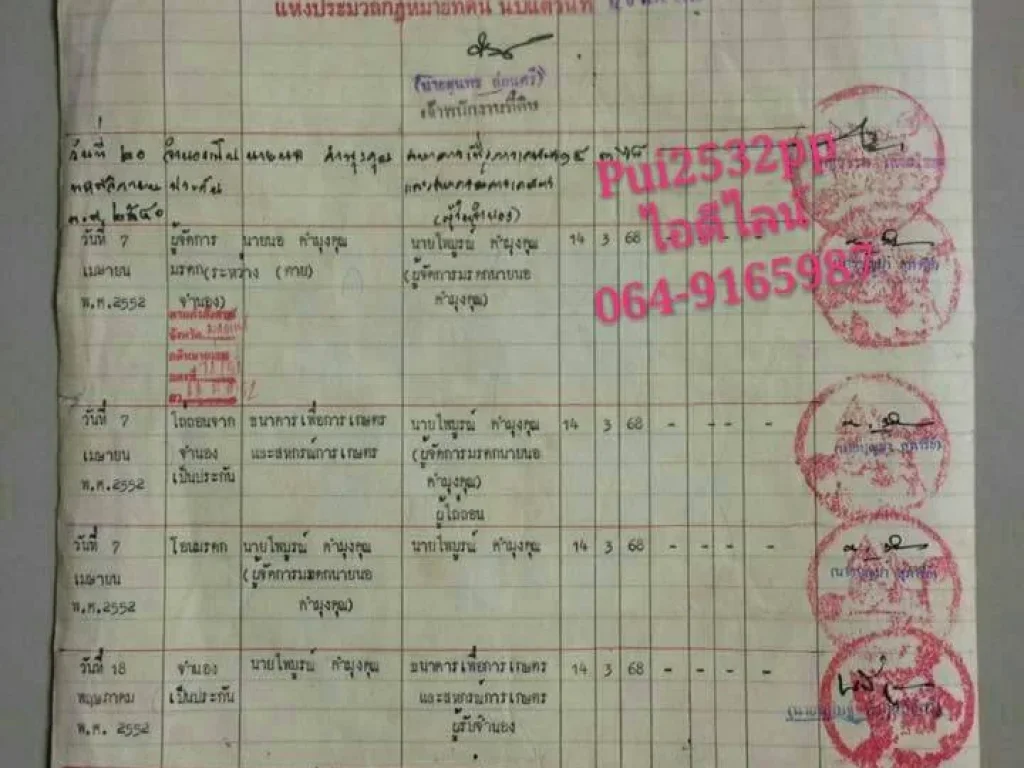 แห่งประมวลกฎหมายที่ดิน นับแต่วันที่
เจ้าพนักงานที่ดิน
วันที่ ๒๐ จำนองเป็น นายนอ คำมุงคุณ ธนาคารเพื่อการเกษตร ๑๔ ๓ ๖๘
พฤศจิกายน ประกัน และสหกรณ์การเกษตร
พ.ศ. ๒๕๔๐ (ผู้รับจำนอง)
Pui2532pp
ไอดีไลน์
064-9165987
วันที่ 7 ผู้จัดการ นายนอ คำมุงคุณ นายไพบูรณ์ คำมุงคุณ 14 3 68
เมษายน มรดก(ระหว่าง (ตาย) (ผู้จัดการมรดกนายนอ
พ.ศ.2552 จำนอง) คำมุงคุณ)
วันที่ 7 ไถ่ถอนจาก ธนาคารเพื่อการเกษตร นายไพบูรณ์ คำมุงคุณ 14 3 68 - - - -
เมษายน จำนอง และสหกรณ์การเกษตร (ผู้จัดการมรดกนายนอ
พ.ศ.2552 เป็นประกัน คำมุงคุณ)
ผู้ไถ่ถอน
วันที่ 7 โอนมรดก นายไพบูรณ์ คำมุงคุณ นายไพบูรณ์ คำมุงคุณ 14 3 68 - - - -
เมษายน (ผู้จัดการมรดกนายนอ
พ.ศ.2552 คำมุงคุณ)
วันที่ 18 จำนอง นายไพบูรณ์ คำมุงคุณ ธนาคารเพื่อการเกษตร 14 3 68 - - - -
พฤษภาคม เป็นประกัน และสหกรณ์การเกษตร
พ.ศ. 2552 ผู้รับจำนอง